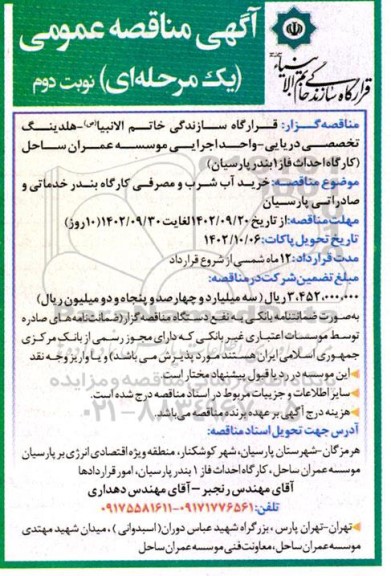 آگهی مناقصه عمومی
(یک مرحله‌ای) نوبت دوم
قرارگاه سازندگی خاتم الانبیاء
مناقصه‌گزار: قرارگاه سازندگی خاتم الانبیا(ص)-هلدینگ
تخصصی دریایی-واحد اجرایی موسسه عمران ساحل
(کارگاه احداث فاز۱ بندر پارسیان)
موضوع مناقصه: خرید آب شرب و مصرفی کارگاه بندر خدماتی و
صادراتی پارسیان
مهلت مناقصه: از تاریخ ۱۴۰۲/۰۹/۲۰ لغایت ۱۴۰۲/۰۹/۳۰ (۱۰ روز)
تاریخ تحویل پاکات: ۱۴۰۲/۱۰/۰۶
مدت قرارداد: ۱۲ ماه شمسی از شروع قرارداد
مبلغ تضمین شرکت در مناقصه:
۳،۴۵۲،۰۰۰،۰۰۰ ریال (سه میلیارد و چهارصد و پنجاه و دو میلیون ریال)
به‌صورت ضمانتنامه بانکی به نفع دستگاه مناقصه گزار (ضمانتنامه‌های صادره
توسط موسسات اعتباری غیر بانکی که دارای مجوز رسمی از بانک مرکزی
جمهوری اسلامی ایران هستند مورد پذیرش می باشد) و یا واریز وجه نقد
این موسسه در رد یا قبول پیشنهاد مختار است.
سایر اطلاعات و جزییات مربوط در اسناد مناقصه درج شده است.
هزینه درج آگهی بر عهده برنده مناقصه می‌باشد
آدرس جهت تحویل اسناد مناقصه:
هرمزگان-شهرستان پارسیان، شهر کوشکنار، منطقه ویژه اقتصادی انرژی بر پارسیان
موسسه عمران ساحل، کارگاه احداث فاز ۱ بندر پارسیان، امور قراردادها
آقای مهندس رنجبر - آقای مهندس دهداری
تلفن: ۰۹۱۷۱۷۷۶۵۶۱-۰۹۱۷۵۵۸۱۶۱۱
تهران-تهران پارس، بزرگراه شهید عباس دوران (اسبدوانی)، میدان شهید مهتدی
موسسه عمران ساحل، معاونت فنی موسسه عمران ساحل